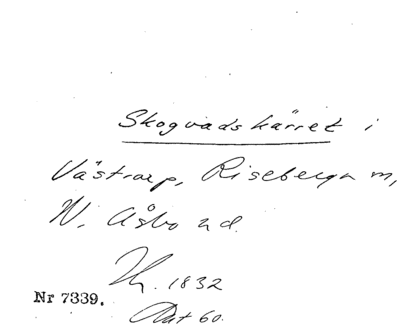 Skogvadskärret i
Västrarp, Riseberga m,
N. Åsbo hd.
1832
Nr 7339.
60.